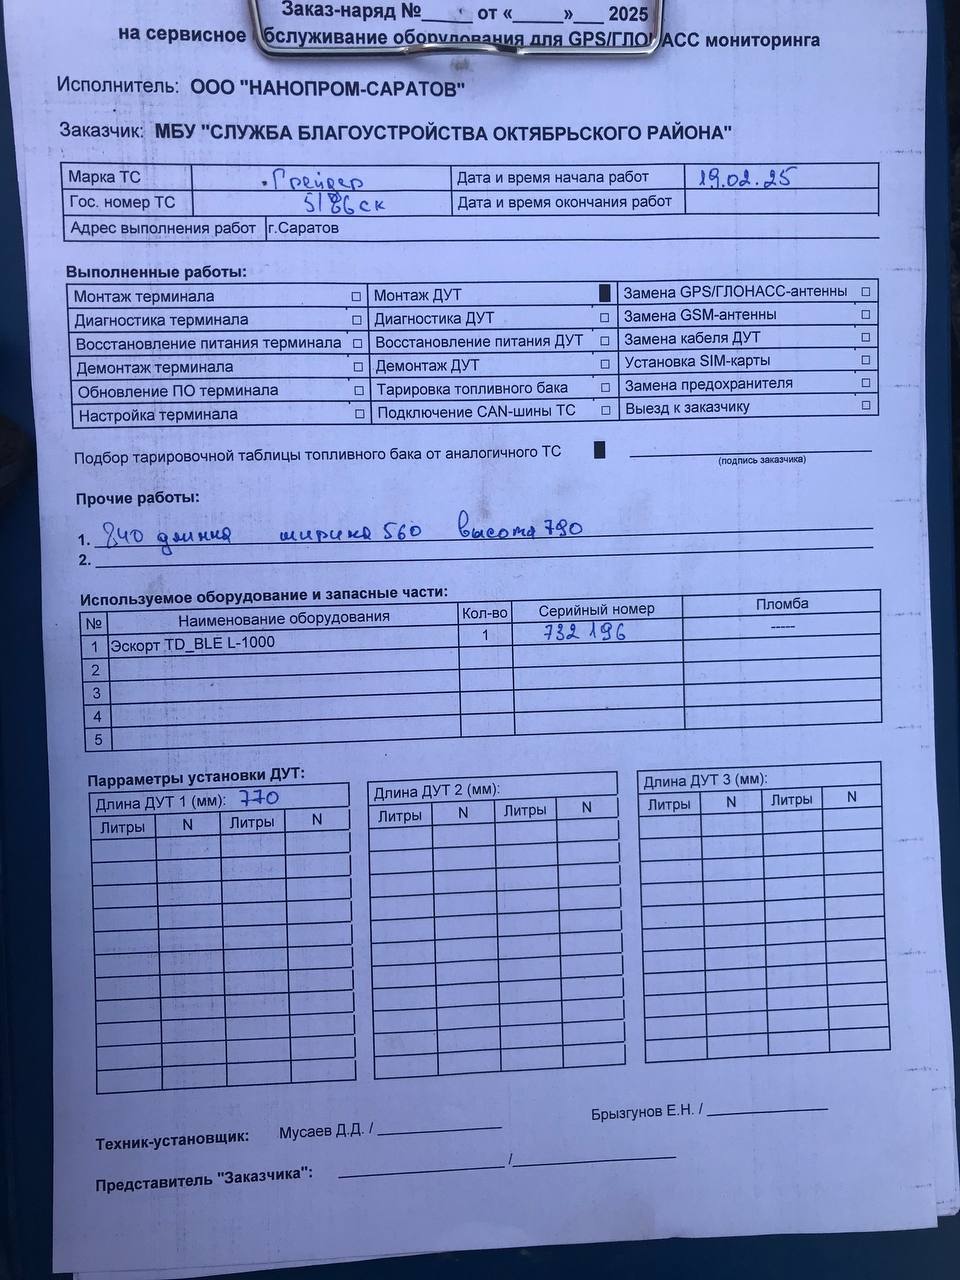 Заказ-наряд №_____ от «_____»___ 2025
на сервисное обслуживание оборудования для GPS/ГЛОНАСС мониторинга
Исполнитель: ООО "НАНОПРОМ-САРАТОВ"
Заказчик: МБУ "СЛУЖБА БЛАГОУСТРОЙСТВА ОКТЯБРЬСКОГО РАЙОНА"
Марка ТС Грейдер Дата и время начала работ 19.02.25
Гос. номер ТС 5186ск Дата и время окончания работ
Адрес выполнения работ г.Саратов
Выполненные работы:
Монтаж терминала □ Монтаж ДУТ ■ Замена GPS/ГЛОНАСС-антенны □
Диагностика терминала □ Диагностика ДУТ □ Замена GSM-антенны □
Восстановление питания терминала □ Восстановление питания ДУТ □ Замена кабеля ДУТ □
Демонтаж терминала □ Демонтаж ДУТ □ Установка SIM-карты □
Обновление ПО терминала □ Тарировка топливного бака □ Замена предохранителя □
Настройка терминала □ Подключение CAN-шины ТС □ Выезд к заказчику □
Подбор тарировочной таблицы топливного бака от аналогичного ТС ■
(подпись заказчика)
Прочие работы:
1. 840 длинна ширина 560 высота 790
2.
Используемое оборудование и запасные части:
№ Наименование оборудования Кол-во Серийный номер Пломба
1 Эскорт TD_BLE L-1000 1 732 196 -----
2
3
4
5
Парраметры установки ДУТ:
Длина ДУТ 1 (мм): 770 Длина ДУТ 2 (мм): Длина ДУТ 3 (мм):
Литры N Литры N Литры N Литры N Литры N Литры N
Техник-установщик: Мусаев Д.Д. / Брызгунов Е.Н. /
Представитель "Заказчика": /